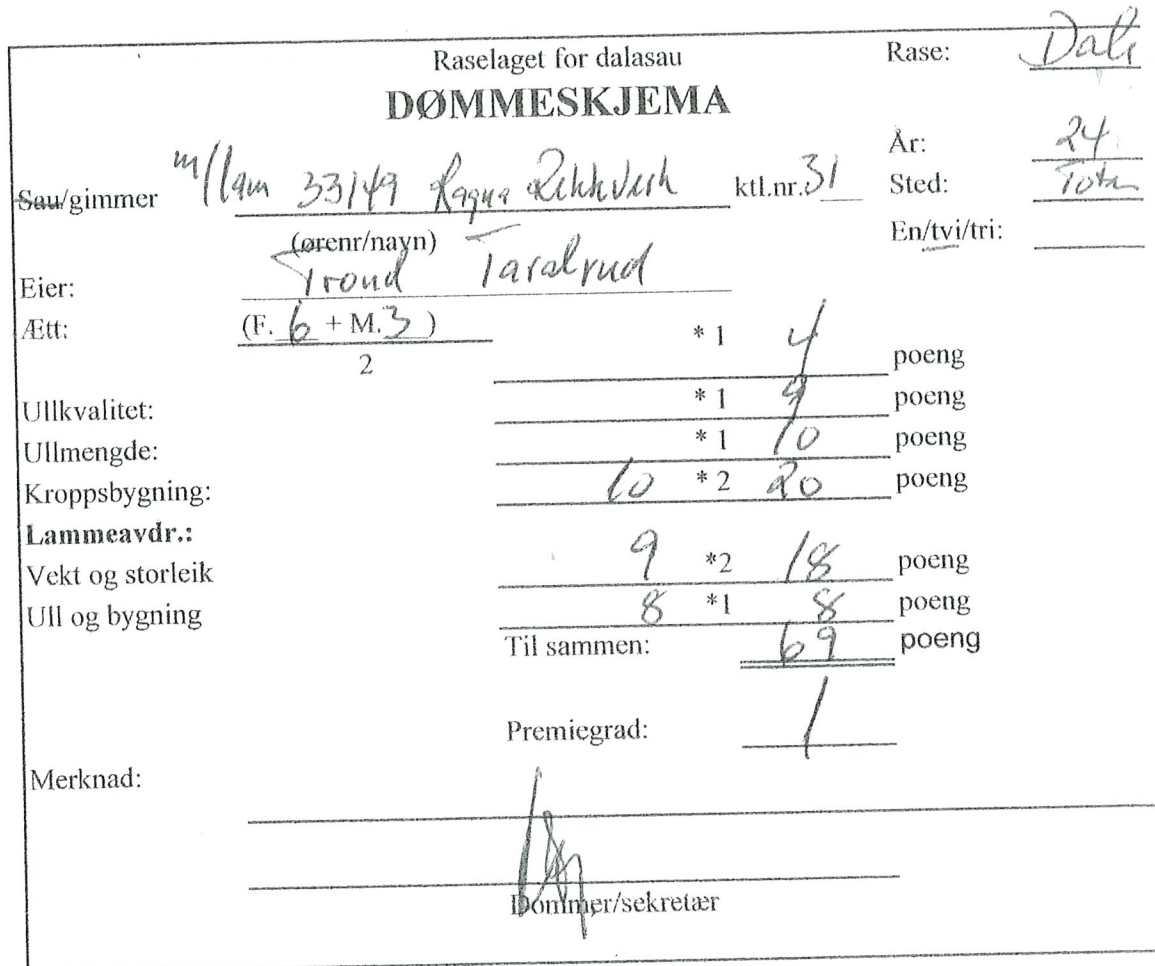 Raselaget for dalasau Rase: Dala
DØMMESKJEMA
År: 24
Sau/gimmer m/lam 33149 Ragna Rekkverk ktl.nr.: 31 Sted: Toten
(ørenr/navn) En/tvi/tri:
Eier: Trond Taralrud
Ætt: (F. 6 + M. 3 ) * 1 4 poeng
2
Ullkvalitet: * 1 9 poeng
Ullmengde: * 1 10 poeng
Kroppsbygning: 10 * 2 20 poeng
Lammeavdr.:
Vekt og storleik 9 *2 18 poeng
Ull og bygning 8 *1 8 poeng
Til sammen: 69 poeng
Premiegrad: 1
Merknad:
Dommer/sekretær